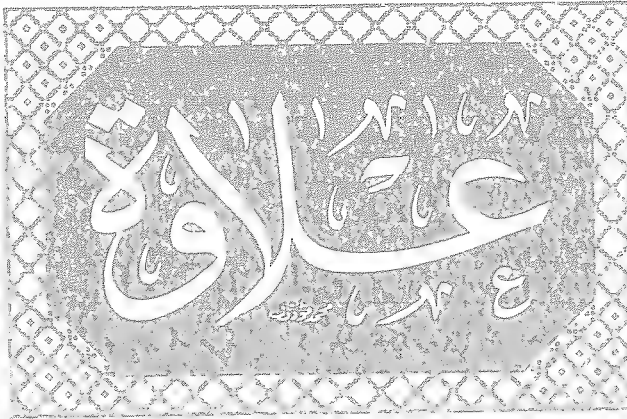 علاوة